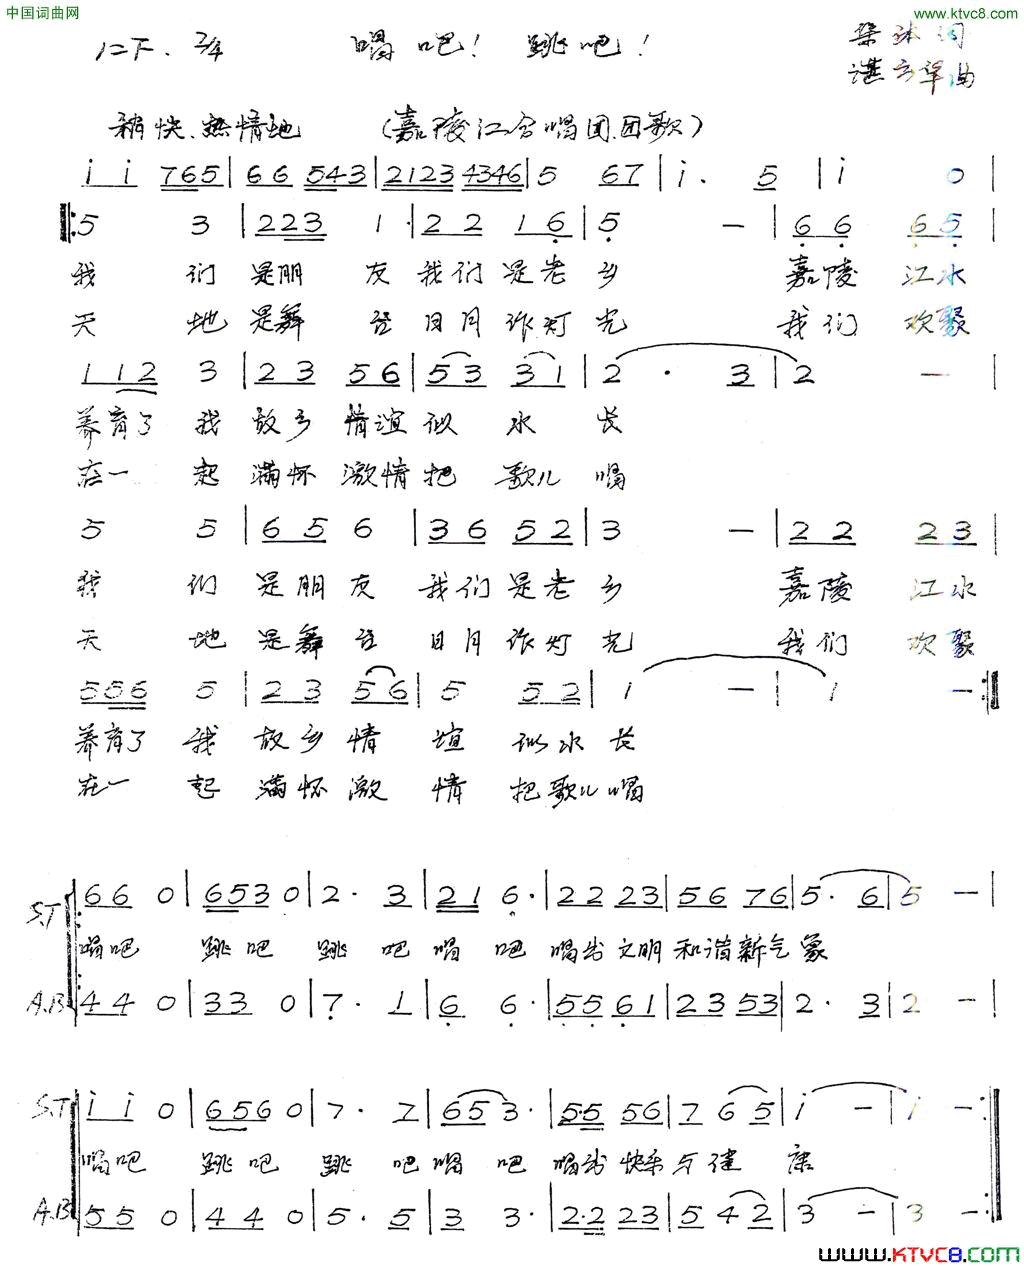 中国词曲网
www.ktvc8.com
1=F 2/4 唱吧！跳吧！ 词
谌云华 曲
稍快、热情地 （嘉陵江合唱团.团歌）
i i 765 | 66 543 | 2123 4346 | 5 67 | i. 5 | i 0 |
5 3 | 223 1. | 22 16 | 5 — | 66 65
我 们 是朋 友 我们 是老 乡 嘉陵 江水
天 地 是舞 台 日月 作灯 光 我们 欢聚
112 3 | 23 56 | 53 31 | 2 . 3 | 2 — |
养育了 我 故乡 情谊 似 水 长
在一 起 满怀 激情 把 歌儿 唱
5 5 | 65 6 | 36 52 | 3 — | 22 23 |
我 们 是朋 友 我们 是老 乡 嘉陵 江水
天 地 是舞 台 日月 作灯 光 我们 欢聚
556 5 | 23 56 | 5 52 | 1 — | 1 — :|
养育了 我 故乡 情 谊 似水 长
在一 起 满怀 激 情 把歌儿 唱
S.T 66 0 | 653 0 | 2. 3 | 21 6. | 22 23 | 56 76 | 5. 6 | 5 — |
唱吧 跳吧 跳 吧 唱 吧 唱出 文明 和谐 新气 象
A.B 44 0 | 33 0 | 7. 1 | 6 6. | 55 61 | 23 53 | 2. 3 | 2 — |
S.T i i 0 | 656 0 | 7. 7 | 65 3. | 55 56 | 7 65 | i — | i — :|
唱吧 跳吧 跳 吧 唱 吧 唱出 快乐 与 健 康
A.B 55 0 | 44 0 | 5. 5 | 3 3. | 2.2 23 | 5 42 | 3 — | 3 — :|
www.KTVC8.com